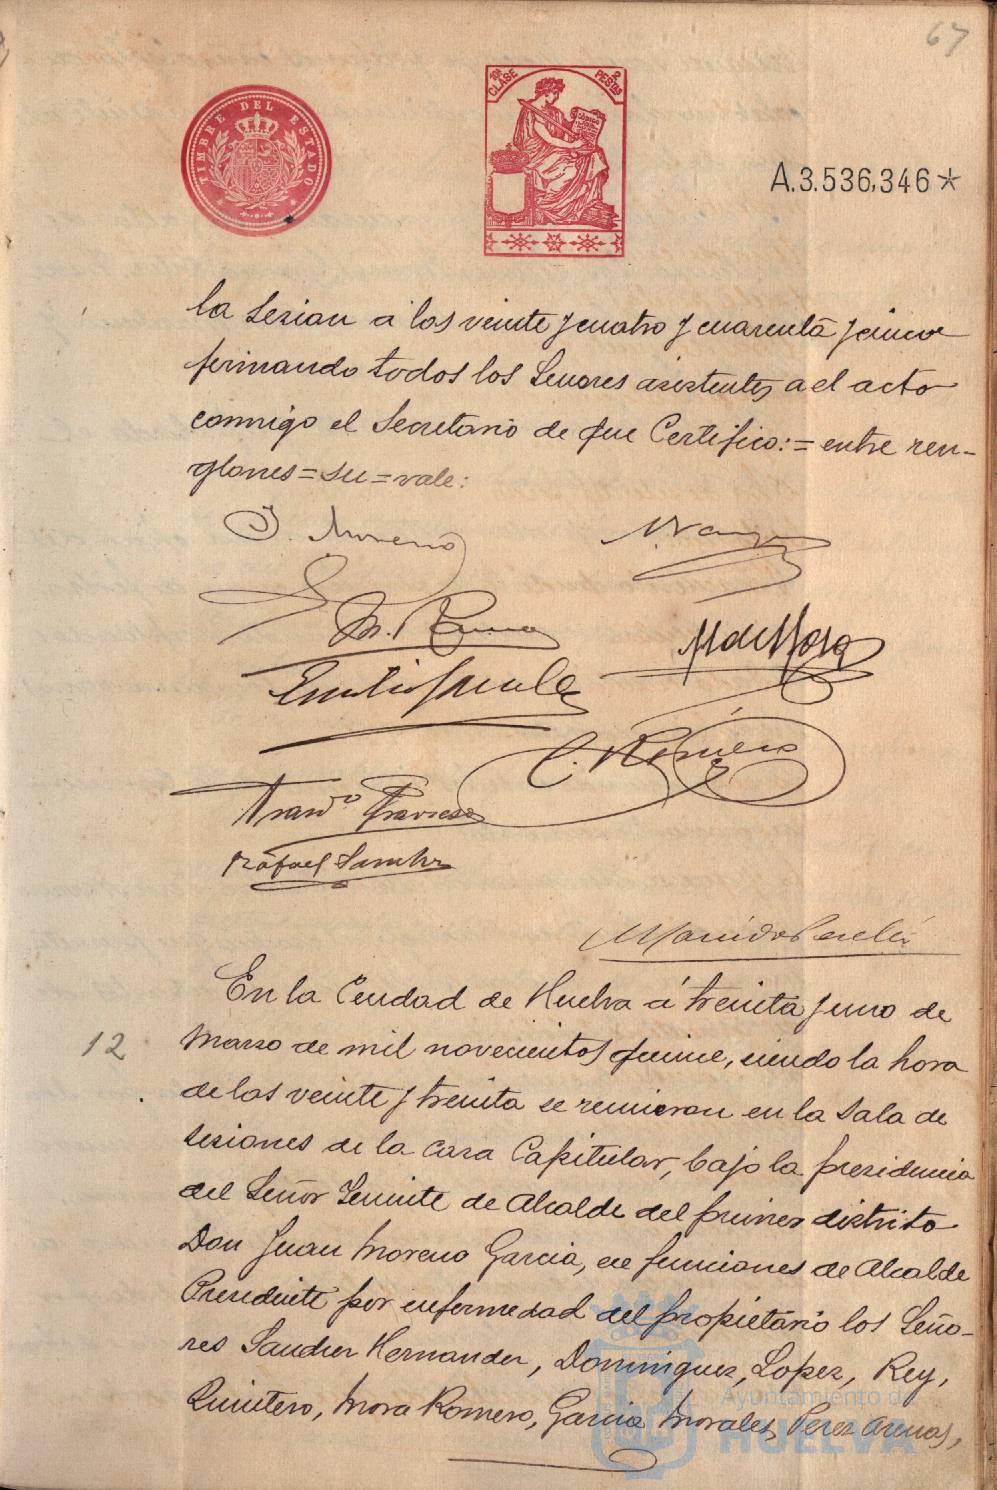 67
TIMBRE DEL ESTADO
10ª CLASE 2 PESTAS
A.3.536,346*
la Sesion a las veinte y cuatro y cuarenta y cinco
firmando todos los Señores asistentes a el acto
conmigo el Secretario de que Certifico:= entre ren-
glones=su=vale:
J. Moreno
M. de Mora
C. Romero
Rafael Sanchz
En la Ciudad de Huelva á treinta y uno de
12
Marzo de mil novecientos quince, siendo la hora
de las veinte y treinta se reunieron en la Sala de
sesiones de la casa Capitular, bajo la presidencia
del Señor Teniente de Alcalde del primer distrito
Don Juan Moreno Garcia, en funciones de Alcalde
Presidente por enfermedad del propietario los Seño-
res Sanchez Hernandez, Dominguez, Lopez, Rey,
Quintero, Mora Romero, Garcia Morales, Perez Armas,
Ayuntamiento de
HUELVA